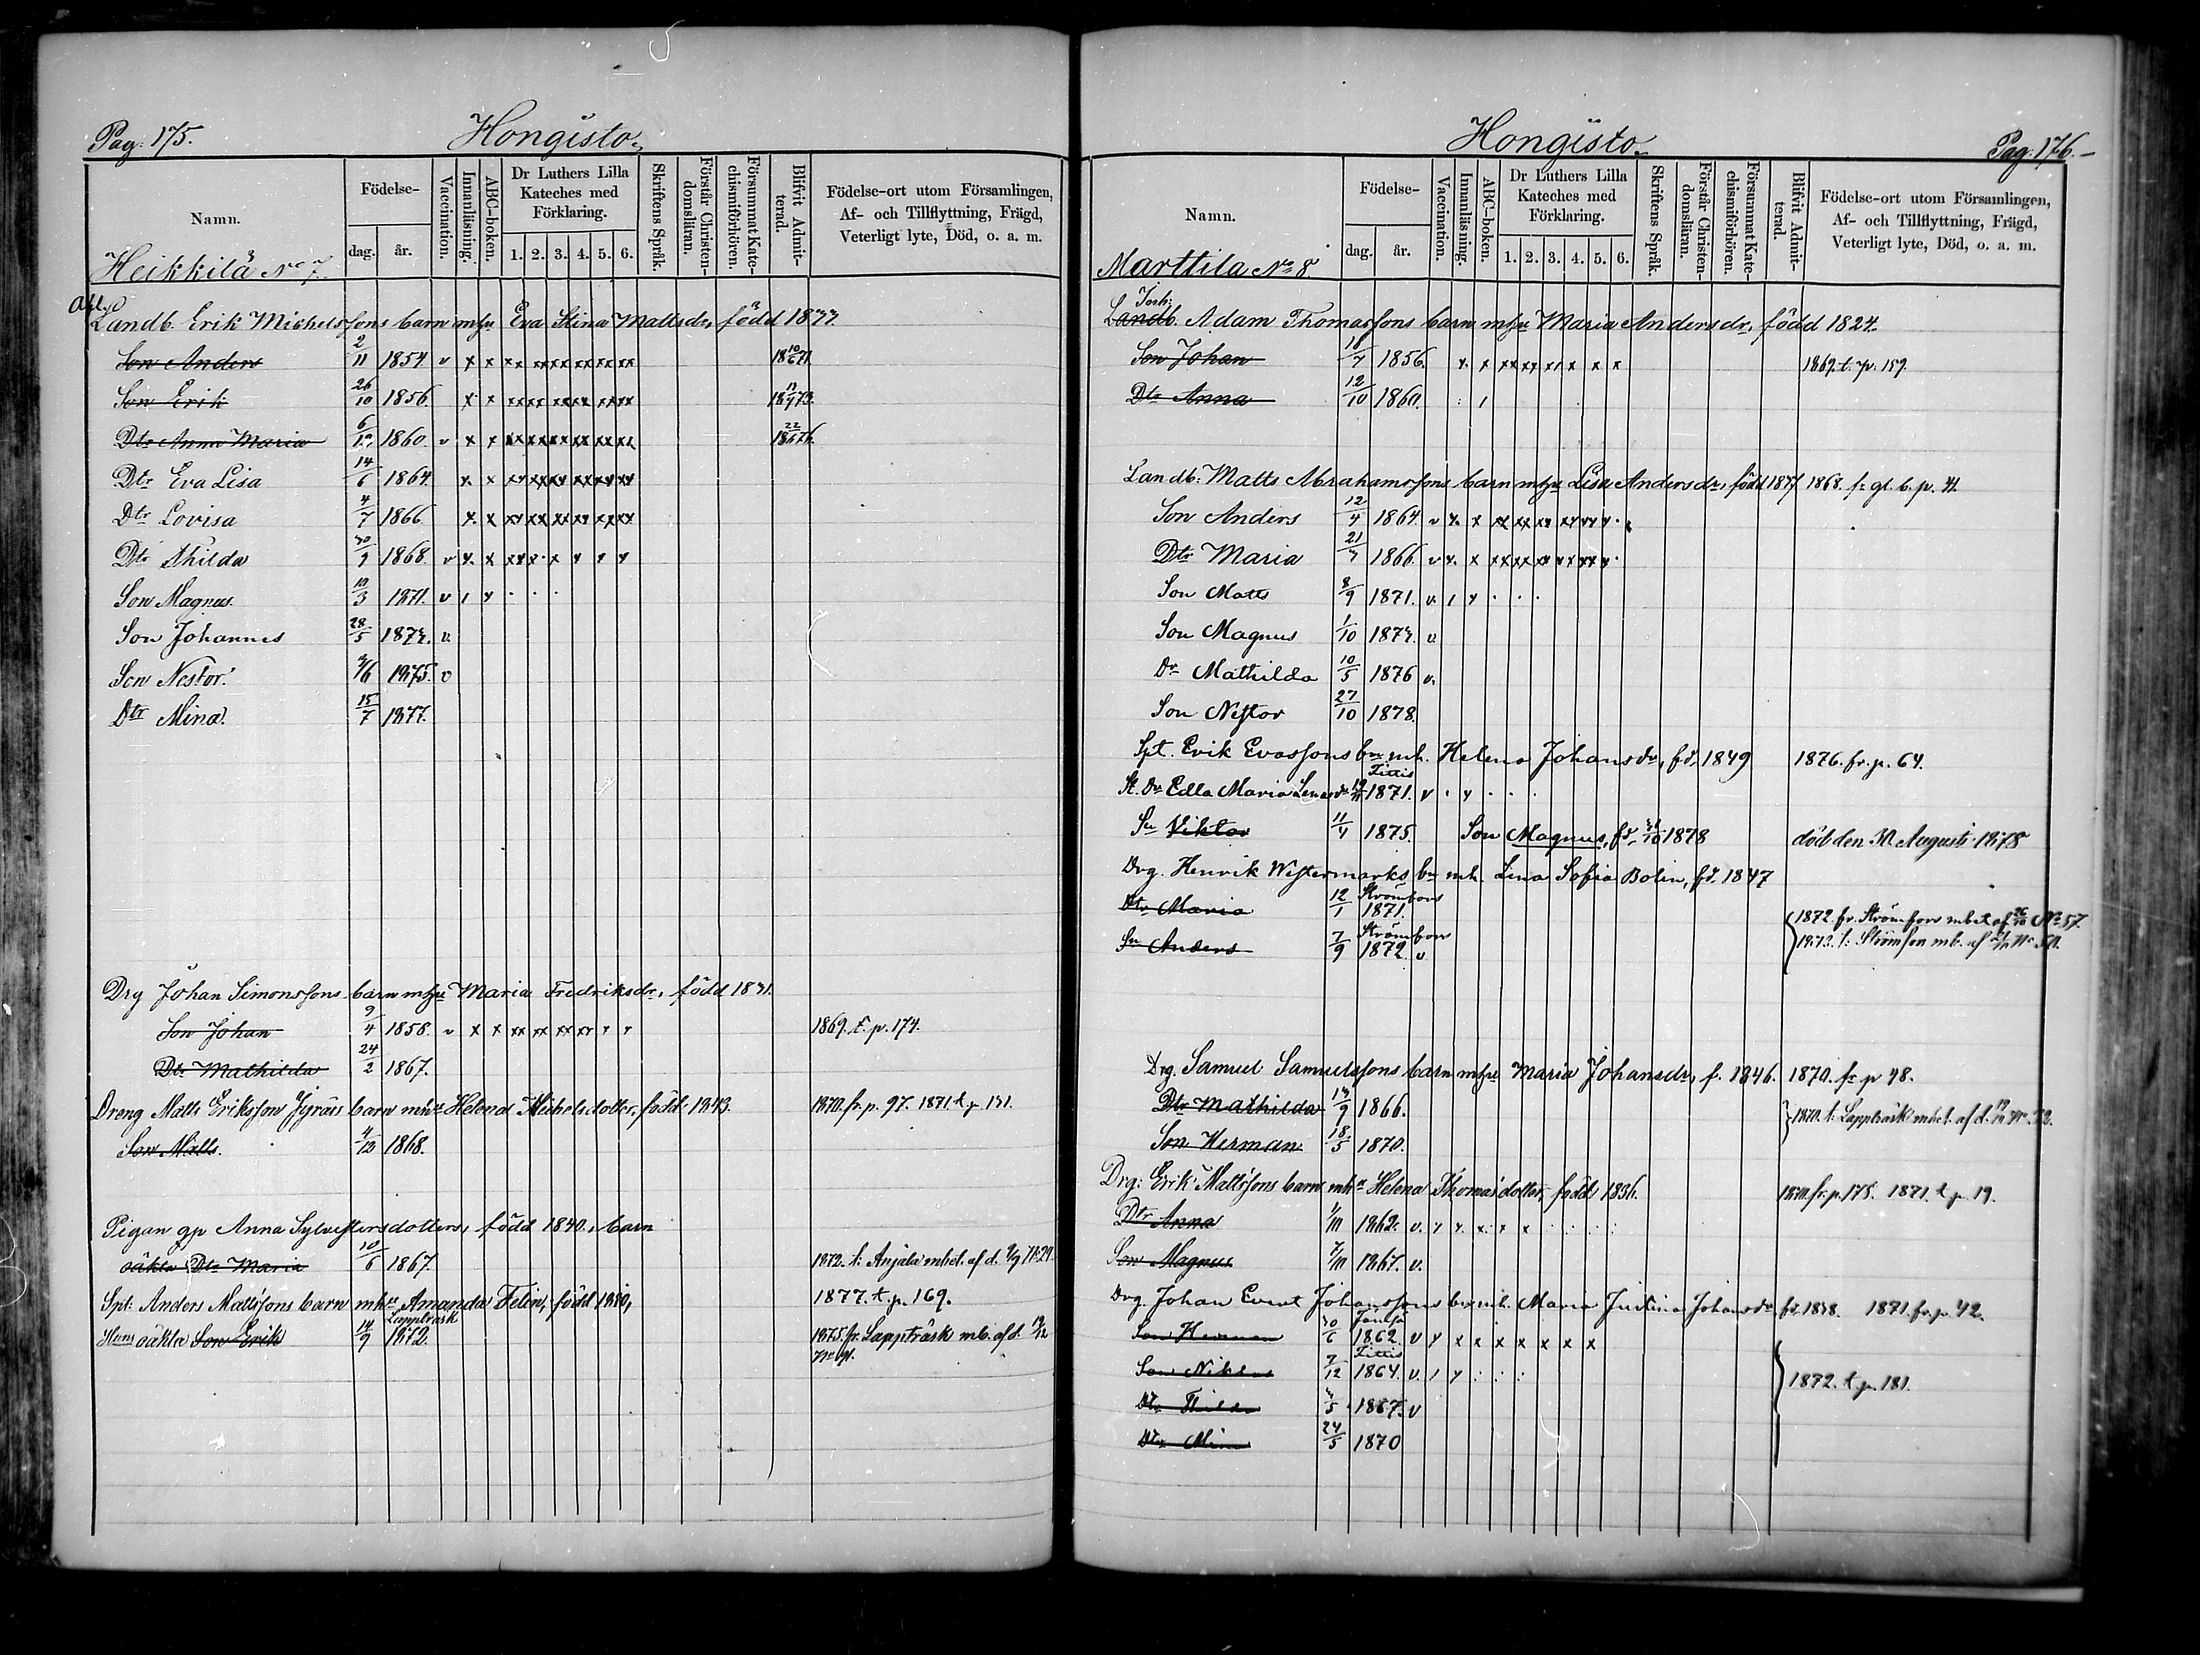 Pag: 175.
Hongisto.
Namn.
Födelse-
dag.
år.
Vaccination.
Innanläsning.
ABC-boken.
Dr Luthers Lilla Kateches med Förklaring.
1. 2. 3. 4. 5. 6.
Skriftens Språk.
Förstår Christendomsläran.
Försummat Katechismiförhören.
Blifvit Admitterad.
Födelse-ort utom Församlingen, Af- och Tillflyttning, Frägd, Veterligt lyte, Död, o. a. m.
Heikkilä No 7.
Landb. Erik Michelssons barn mhu Eva Stina Mattsdr, född
Son Anders 2/11 1854. v x x xx xx xx xx xx xx
Son Erik 26/10 1856. x x xx xx xx xx xx xx
Dtr Anna Maria 1860. v x x xx xx xx xx xx xx
Dtr Eva Lisa 14/6 1864. x x xx xx xx xx xx xx
Dtr Lovisa 4/7 1866. x x xx xx xx xx xx xx
Dtr Thilda 30/9 1868. v x x
Son Magnus. 10/3 1871. v
Son Johannes 28/5 v.
Son Nestor. 1875. v
Dtr Mina. 15/7 1877.
Drg Johan Simonssons barn mhu Maria Fredriksdr, född
Son Johan 9/4 1858. v x x xx xx xx xx 1869. t. p. 174.
Dtr Mathilda 24/2 1867.
Dreng Matts Eriksson barn Helena Michelsdotter, född 1843. 1870. fr. p. 97. 1871. t. p. 131.
Son Matts. 1868.
Pigan gp Anna Sylvestersdotters, född 1840, barn
oäkta Dtr Maria 10/6 1867. 1872. t. Anjala mbet. af d.
Spt: Anders Mattssons barn mhu Amanda Felin, född 1850, 1877. t. p. 169.
Lappträsk
Hans oäkta Son Erik 14/9 1872. 1875. fr. Lappträsk mb. af d.
Hongisto.
Pag. 176.
Namn.
Födelse-
dag.
år.
Vaccination.
Innanläsning.
ABC-boken.
Dr Luthers Lilla Kateches med Förklaring.
1. 2. 3. 4. 5. 6.
Skriftens Språk.
Förstår Christendomsläran.
Försummat Katechismiförhören.
Blifvit Admitterad.
Födelse-ort utom Församlingen, Af- och Tillflyttning, Frägd, Veterligt lyte, Död, o. a. m.
Marttila No 8.
Inh:
Landb. Adam Thomassons barn mhu Maria Andersdr, född 1824.
Son Johan 1856. x x xx xx 1869. t. p. 159.
Dtr Anna 12/10 1860.
Landb: Matts Abrahamssons barn mhu Lisa Andersdr, född 1868. fr gl. b. p.
Son Anders 12/4 1864. v x x
Dtr Maria 21/7 1866. v x x
Son Matts 8/9 1871. v.
Son Magnus 1/10 v
Dr Mathilda 10/5 1876 v.
Son Nestor 27/10 1878.
Spt. Erik Evassons bn mh. Helena Johansdr, fd. 1849 1876. fr. p. 64.
Tittis
Dr Edla Maria 1871. v
Sn Viktor 1875. Son Magnus, fd. 1878 död den Augusti 1878
Drg. Henrik Westermarks bn mh. Lena Sofia Bolin, fd. 1847
Dtr Maria 12/1 Strömfors 1871. 1872. fr. Strömfors mbet af No 57.
Sn Anders 7/9 Strömfors 1872. v 1873. t. Strömfors mb. af
Drg. Samuel Samuelssons barn mhu Maria Johansdr, f. 1846. 1870. fr p 48.
Dtr Mathilda 1866. 1870. t. Lappträsk mbet. af d.
Son Herman 18/5 1870.
Drg: Erik Mattssons barn mhu Helena Thomasdotter, född 1836. 1870. fr. p. 175. 1871. t. p. 19.
Dtr Anna 1862. v.
Son Magnus 1867. v.
Drg. Johan Evert Johanssons bn mh. Maria Justina Johansdr, fd. 1838. 1871. fr. p. 42.
Son Herman 30/6 1862. v x x x x x x x
Tittis
Son Niklas 7/12 1864. v. 1872. t. p. 181.
Dtr Thilda 1867. v
Dtr Mina 24/5 1870